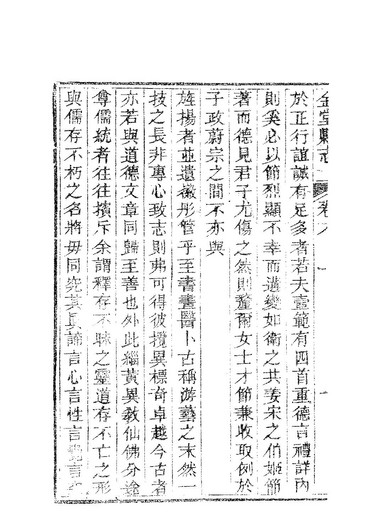 金堂縣志 卷八 一
於正行誼誠有足多者若夫壼範有四首重德言禮詳內
則奚必以節烈顯不幸而遘變如衛之共姜宋之伯姬節
著而德見君子尤傷之然則釐爾女士才節兼收取例於
子政蔚宗之間不亦與
旌揚者並遺徽彤管乎至書畫醫卜古稱游藝之末然一
技之長非專心致志則弗可得彼攬異標奇卓越今古者
亦若與道德文章同歸至善也外此繼黃異教仙佛分途
尊儒統者往往擯斥余謂釋存不昧之靈道存不亡之形
與儒存不朽之名將毋同究其真諦言心言性言覺言